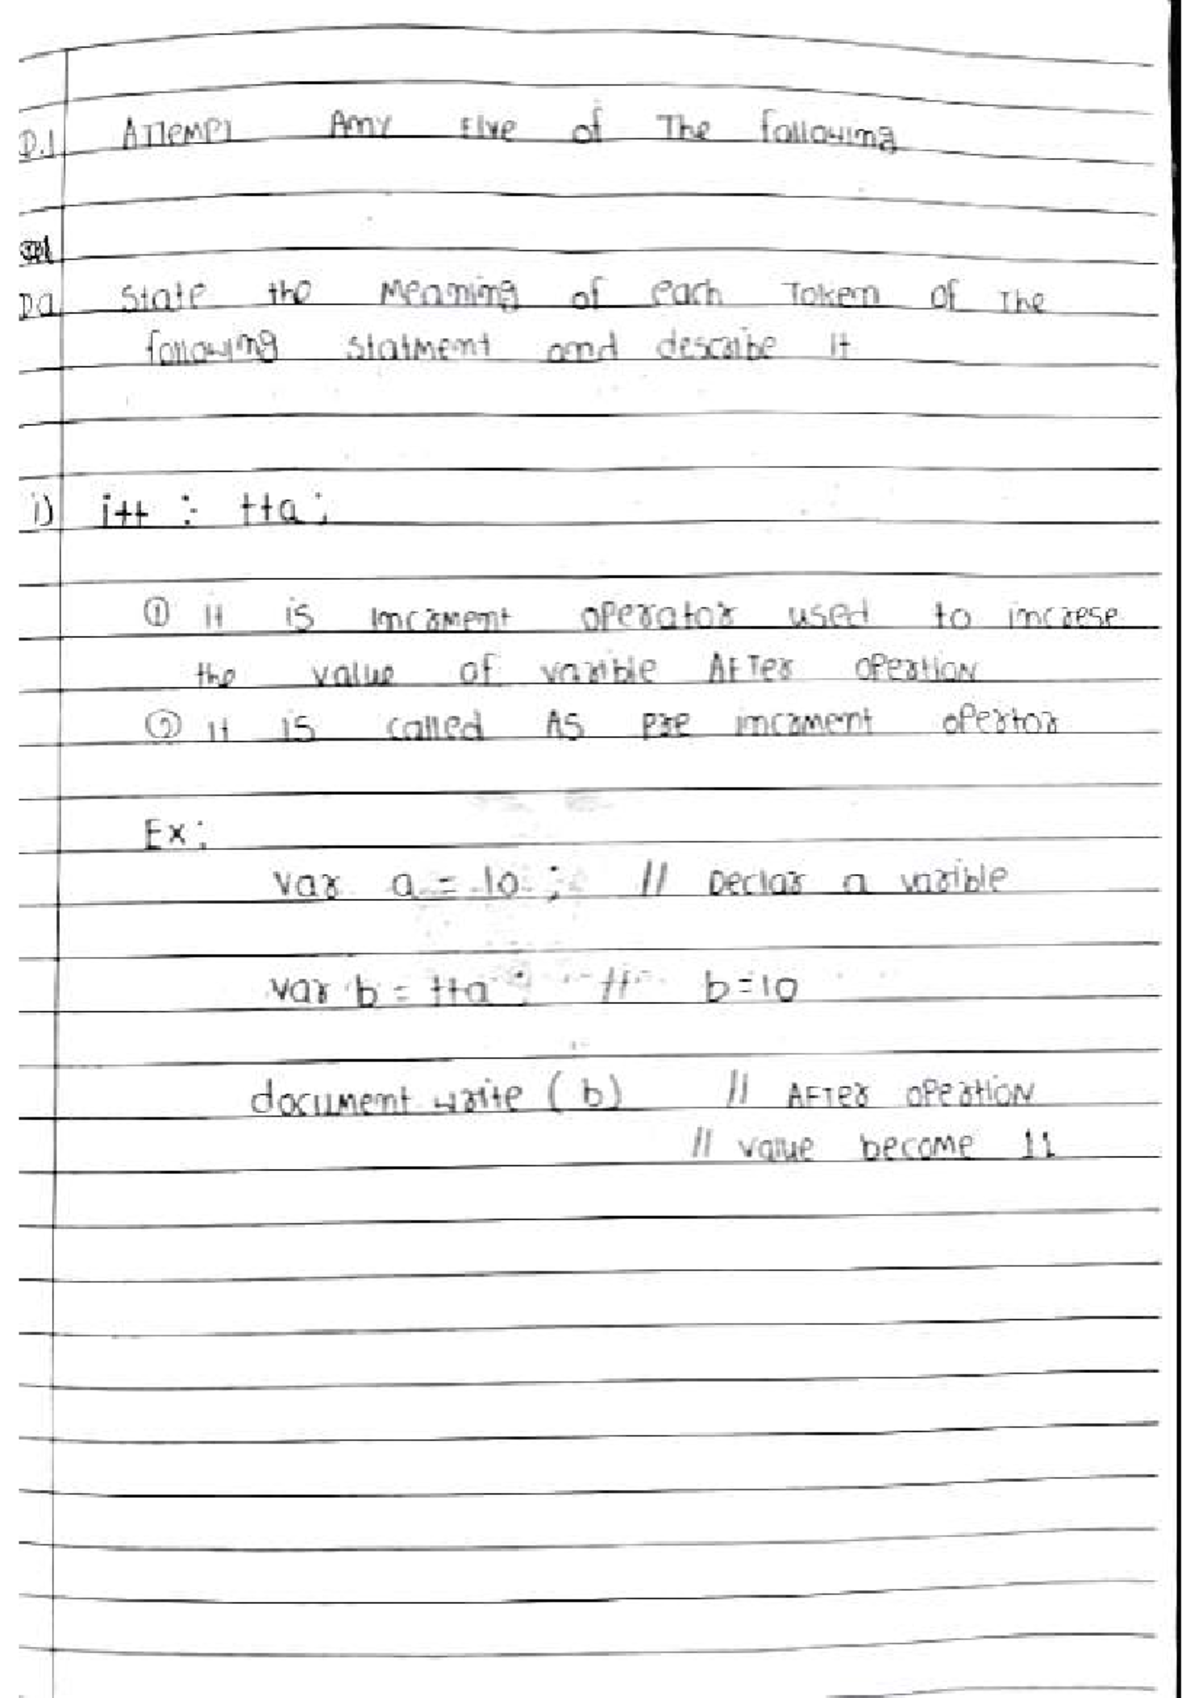 Q.1 Attempt Any Five of The following
Q.a State the Meaning of each Token of The
following statment and describe it
i) i++ : ++a ;
① it is incrment operator used to increse
the value of varible AFTer opertion
② it is called As pre incrment opertor
Ex:
var a = 10 ; // Declar a varible
var b = ++a ; // b=10
document.write ( b ) // AFTer opertion
// value become 11